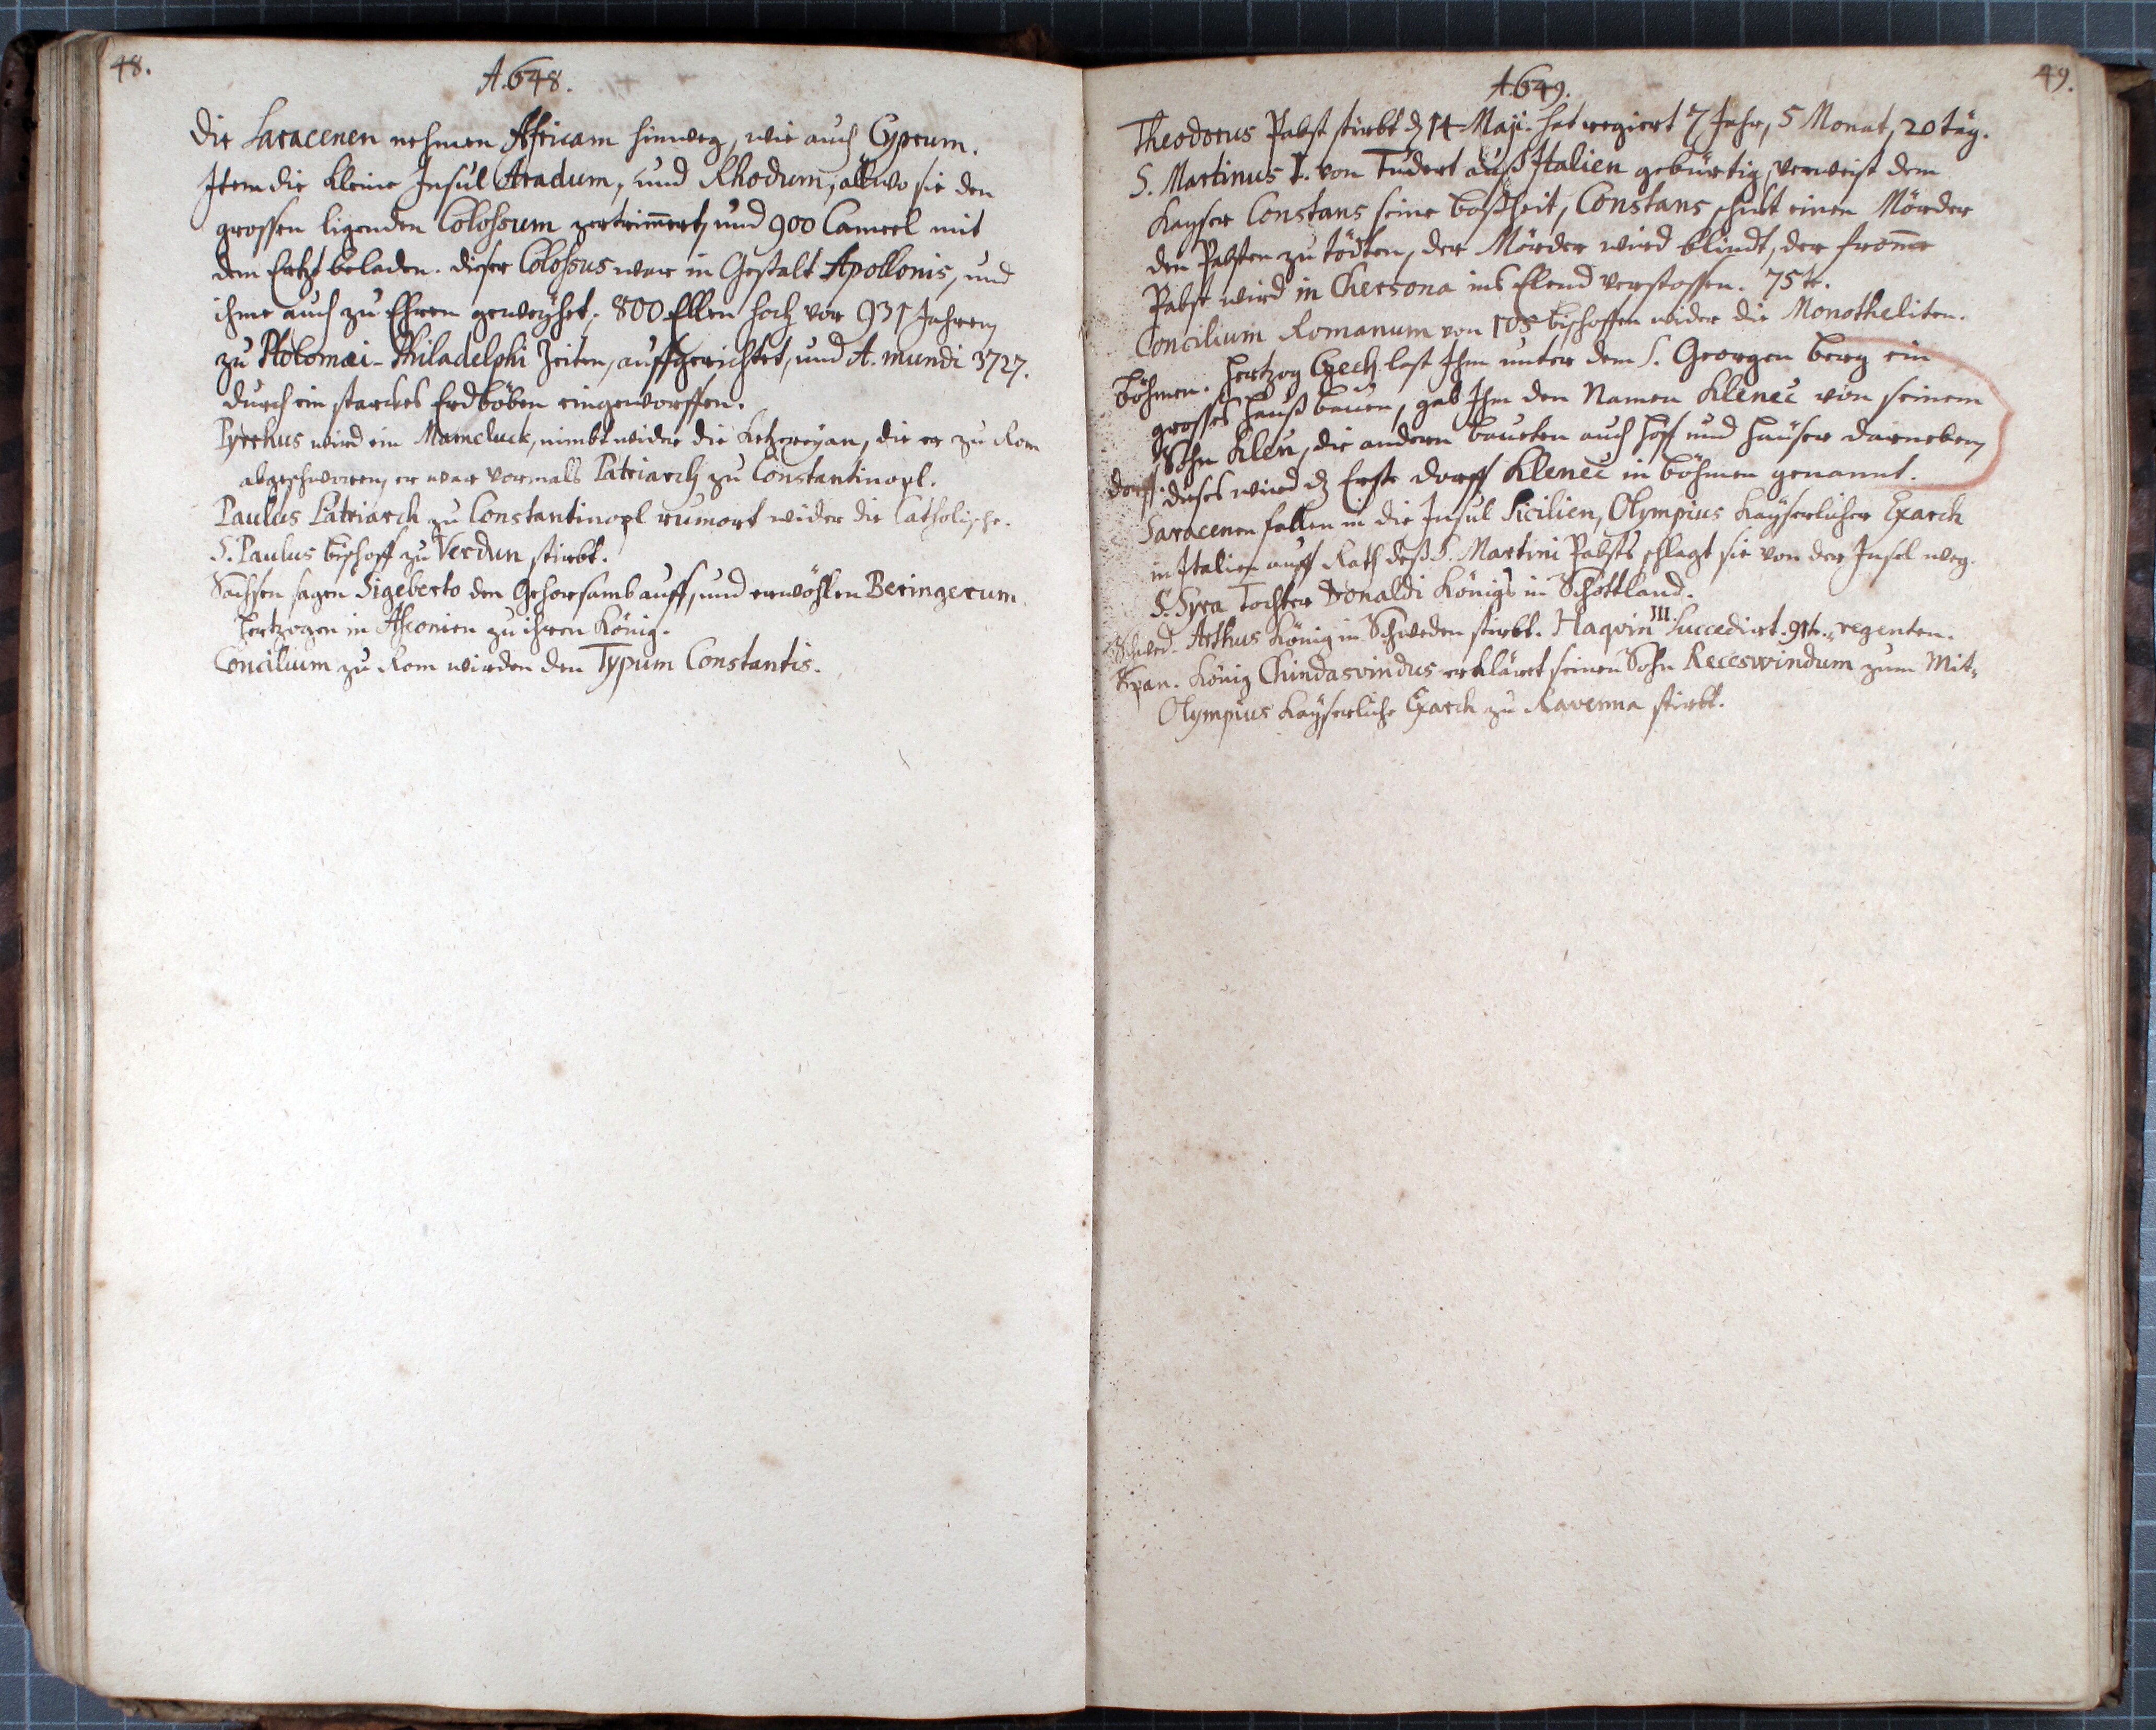 48.
A. 648.
Die Saracenen nehmen Africam hinweg, wie auch Cyprum.
Item die kleine Insul Aradum, und Rhodum, allwo sie den
grossen ligenden Colossum zertrim̅ert, und 900 Cameel mit
dem Ertzt beladen. dieser Colossus war in Gestalt Apollonis, und
ihme auch zu Ehren geweÿhet, 800 Ellen hoch vor 931 Jahren,
zu Ptolomæi-Philadelphi Zeiten, auffgerichtet, und A. mundi 3727.
durch ein starckes Erdböben eingeworffen.
Pyrrhus wird ein Mameluck, nimbt wider die Ketzereÿ an, die er zu Rom
abgeschworen, er war vormals Patriarch zu Constantinopl.
Paulus Patriarch zu Constantinopl rumort wider die Catholische.
S. Paulus Bischoff zu Verdun stirbt.
Sachsen sagen Sigeberto den Gehorsamb auff, und erwöhlen Beringerum
Hertzogen in Asconien zu ihren König.
Concilium zu Rom wieder den Typum Constantis.
49.
A. 649.
Theodorus Pabst stirbt d. 14 Maji. hat regiert 7 Jahr, 5 Monat, 20 täg.
S. Martinus I. von Tudert auß Italien gebürtig, verweist dem
Kayser Constans seine boßheit, Constans schickt einen Mörder
den Pabsten zu tödten, der Mörder wird blindt, der from̅e
Pabst wird in Chersona ins Elend verstossen. 75te.
Concilium Romanum von 105 bischoffen wider die Monotheliten.
Böhmen. Hertzog Czech last Ihm unter dem S. Georgen berg ein
grosses Hauß bauen, gab Ihm den Namen Klenec von seinem
Sohn Klen, die andern bauten auch Höff und Häuser darneben,
dorff. dieses wird d. Erste dorff Klenec in Böhmen genannt.
Saracenen fallen in die Insul Sicilien, Olympius Kayserlicher Exarch
in Italien auff Rath deß S. Martini Pabsts schlagt sie von der Insel weg.
S. Syra Tochter Donaldi Königs in Schottland.
Schwed. Arthus König in Schweden stirbt. Haqvin III. Succedirt. 91te. regenten.
Span. König Chindasvindus erkläret seinen Sohn Reccswindum zum Mit-
Olympius Kayserliche Exarch zu Ravenna stirbt.